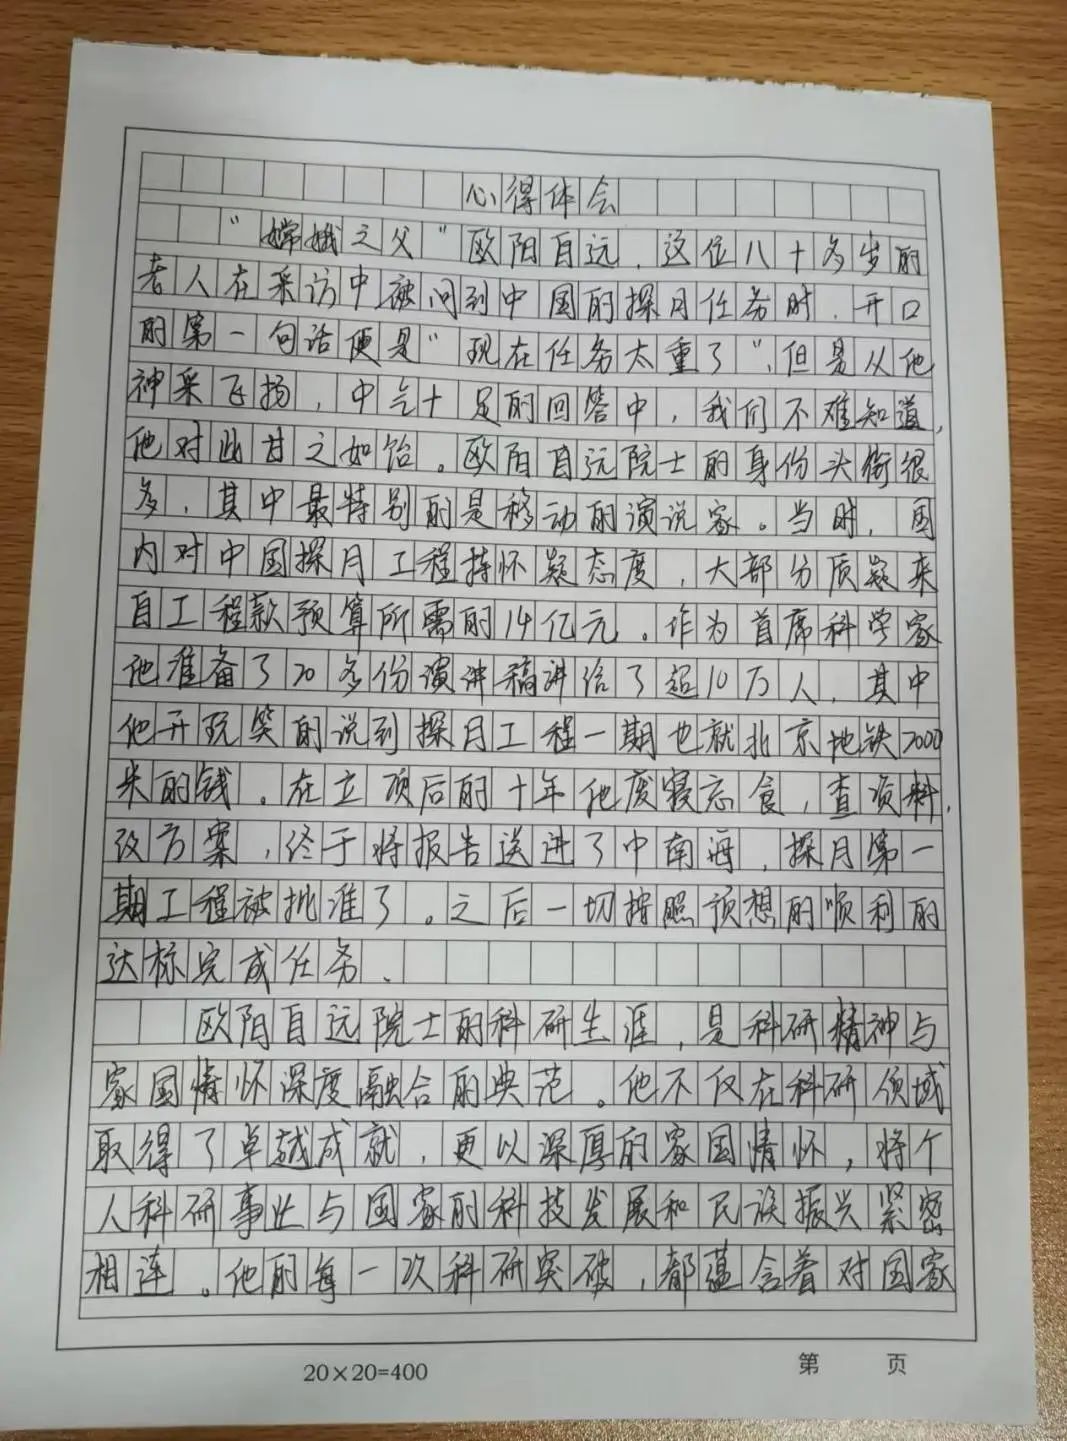 心得体会
“嫦娥之父”欧阳自远，这位八十多岁的
老人在采访中被问到中国的探月任务时，开口
的第一句话便是“现在任务太重了”，但是从他
神采飞扬，中气十足的回答中，我们不难知道，
他对此甘之如饴。欧阳自远院士的身份头衔很
多，其中最特别的是移动的演说家。当时，国
内对中国探月工程持怀疑态度，大部分质疑来
自工程款预算所需的14亿元。作为首席科学家
他准备了70多份演讲稿讲给了超10万人，其中
他开玩笑的说到探月工程一期也就北京地铁7000
米的钱。在立项后的十年他废寝忘食，查资料，
改方案，终于将报告送进了中南海，探月第一
期工程被批准了。之后一切按照预想的顺利的
达标完成任务、
欧阳自远院士的科研生涯，是科研精神与
家国情怀深度融合的典范。他不仅在科研领域
取得了卓越成就，更以深厚的家国情怀，将个
人科研事业与国家的科技发展和民族振兴紧密
相连。他的每一次科研突破，都蕴含着对国家
20×20=400
第 页